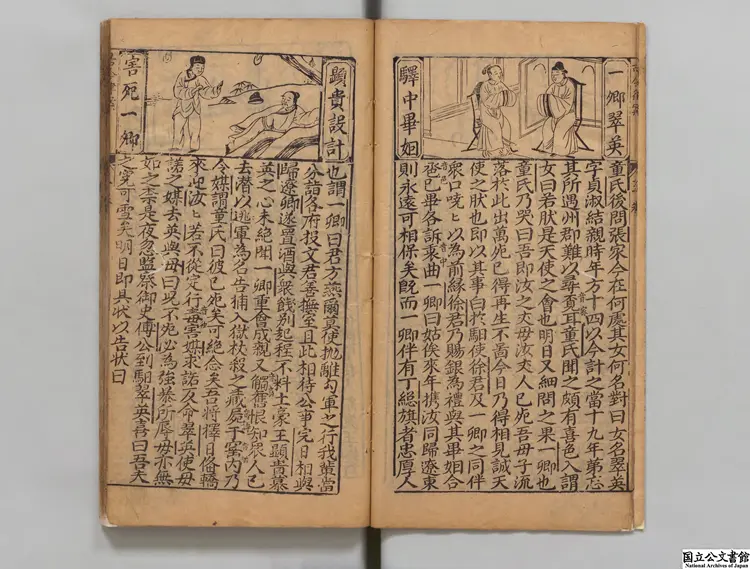 一卿翠英
驛中畢姻
童氏後問張家今在何處其女何名對曰女名翠英
字貞淑結親時年方十四以今計之當十九年第忘
其所遇州郡難以尋覓耳童氏聞之頗有喜色入謂
女曰若肰是天使之會也明日又細問之果一卿也
童氏乃哭曰吾即汝之夾母汝夾人已死吾母子流
落於此出萬死已得再生不啚今日乃得相見誠天
使之肰也即以其事白於馹使徐君及一卿之同伴
衆口哓〻以為前緣徐君乃賜銀為禮與其畢姻合
卺已畢各訴衷曲一卿曰姑俟來年携汝同歸遼東
則永遠可相保矣既而一卿伴有丁総旗者忠厚人
顕貴設計
害死一卿
也謂一卿曰君方燕爾莫便抛離勾軍之行我軰當
分詣各府投文君善撫室且此相待公事完日相與
歸遼卿遂置酒與衆餞别起程不料土豪王顕貴慕
英之心未絶聞一卿重會成親又觸舊恨知衆人已
去潜以逃軍為名告捕入獄杖殺之藏屍于窑内乃
令媒謂童氏曰彼已死矣可絶念矣吾將擇日俻轎
來迎汝〻若不從定行毒害媒求諾乃命翠英使母
諾之媒去英與母曰兒不死必為強暴所辱毋亦無
如之柰是夜忽監察御史傅公到馹翠英喜曰吾夫
之寃可雪矣明日即具狀以告狀曰
国立公文書館
National Archives of Japan